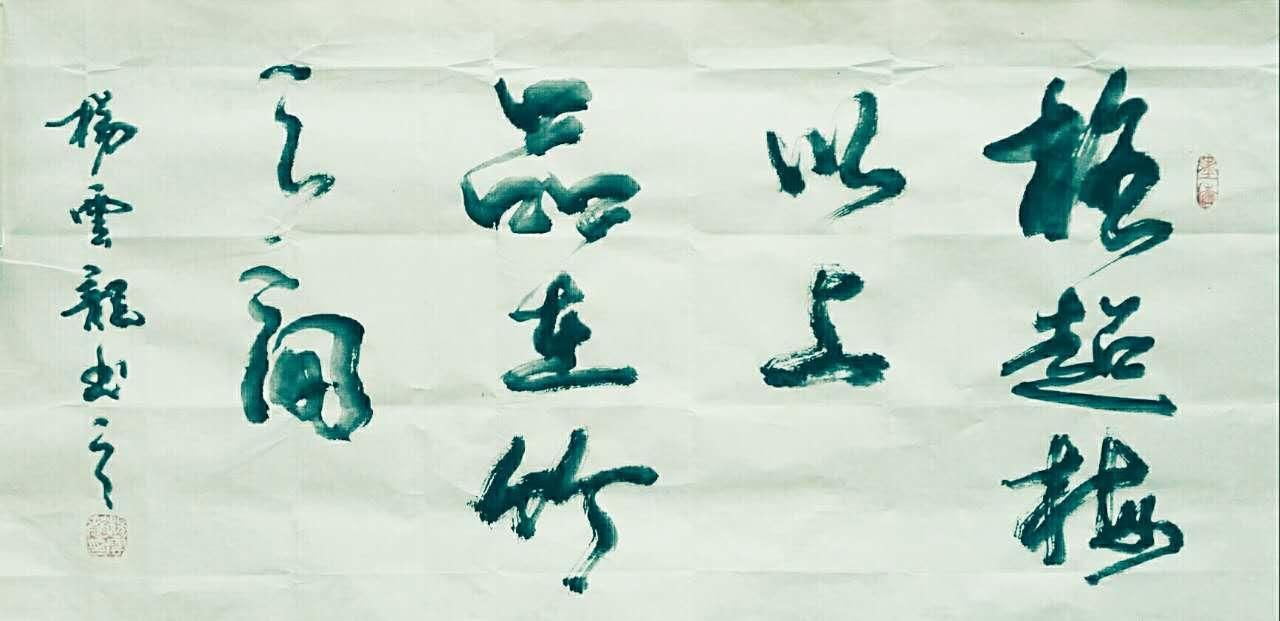 格超梅
以上
品在竹
之间
楊雲龍书之